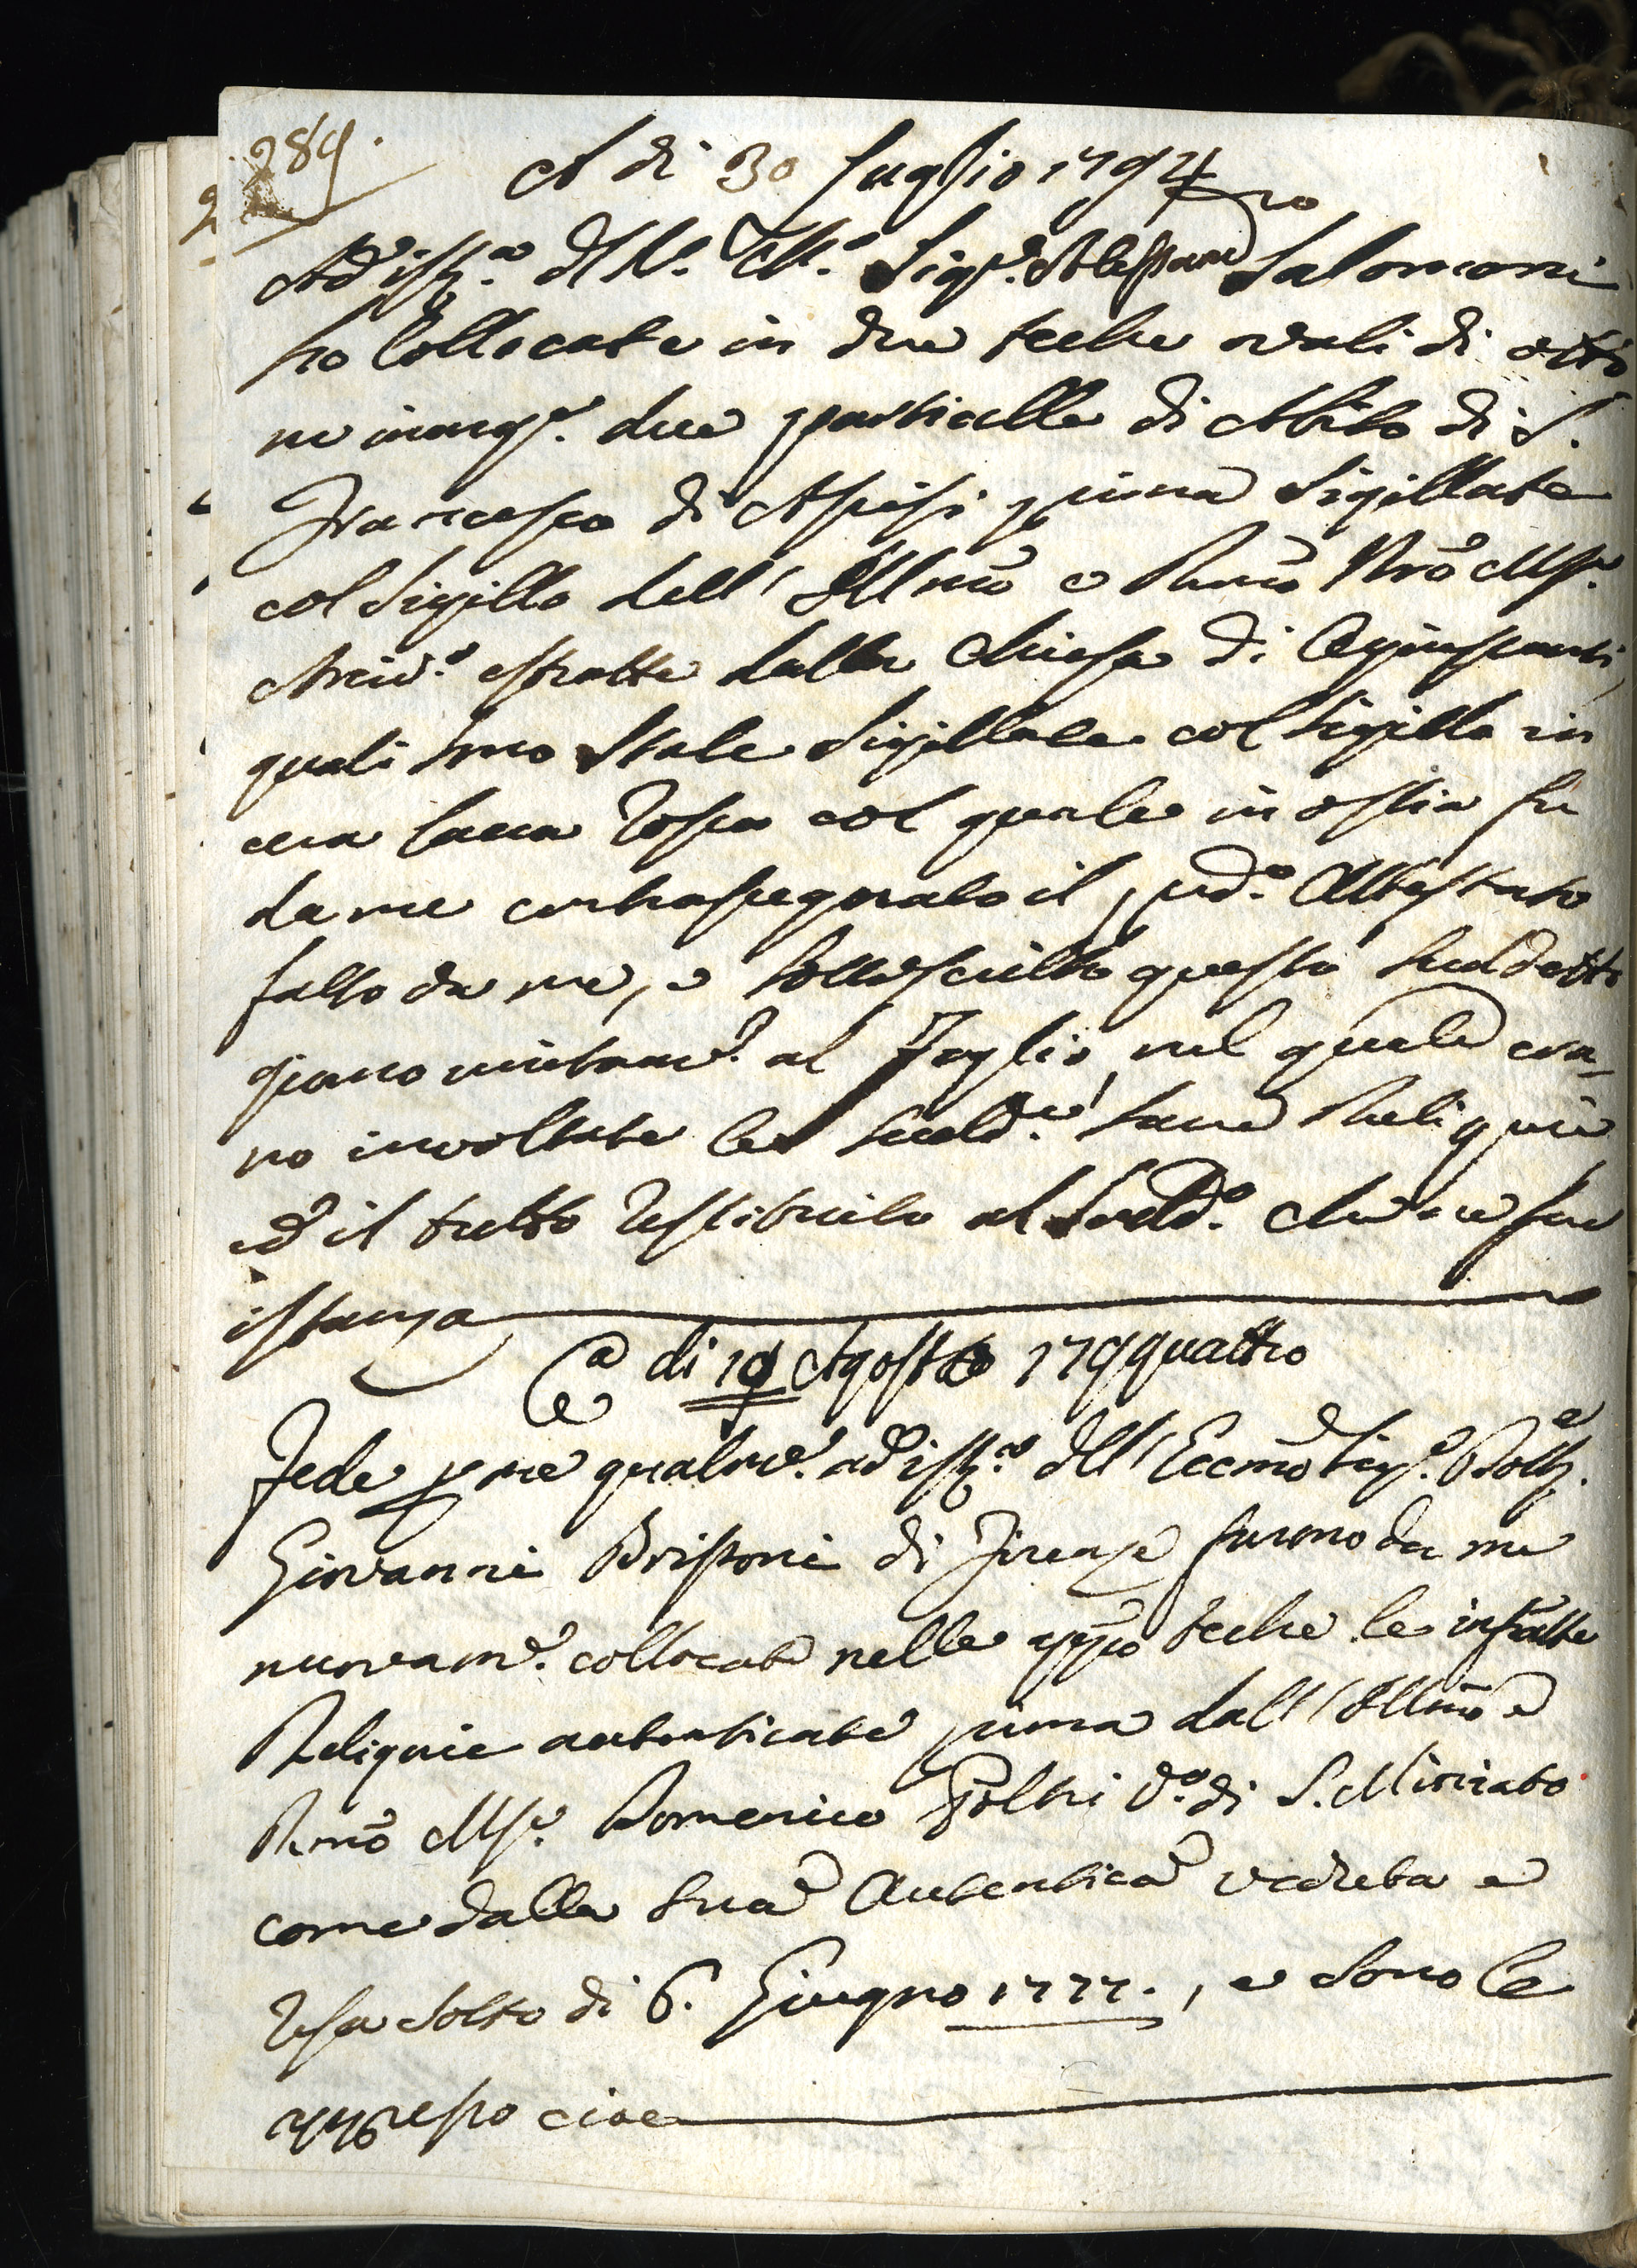 284.
A di 30 Luglio 1794
Ad istz.ª dll'. Ill.º Sig.r Alessandro Salomoni
ho Collocate in due teche ovali di otto
ne inarg.te due particelle di Abito di S.
Francesco di Assisi prima Sigillate
col Sigillo dell' Illmo e Rmo Nro Msr.
Arciv.º estratte dalla Chiesa di
quali sono state Sigillate col Sigillo in
cera lacca rossa col quale in ostia fu
da me contrasegnato il pred.º Attestato
fatto da me, e sottoscritto questo suddetto
giorno unitam.e al Foglio nel quale era
no involtate le sudd.e Sacre Reliquie
ed il tutto restituito al Sudd.º che ne fece
istanza
A di 19 Agosto 179quattro
Fede p me qualm.e ad istz.ª dll' Eccmo Sig.r Dott.
Giovanni Brissoni di Firenze furono da me
nuovam.e collocate nelle apo teche le infratte
Reliquie autenticate prima dall' Illmo e
Rmo Msr. Domenico Poltri V.º di S. Miniato
come dalla sua Autentica veduta e
resa sotto di 6. Giugno 1777., e sono le
appresso cioe